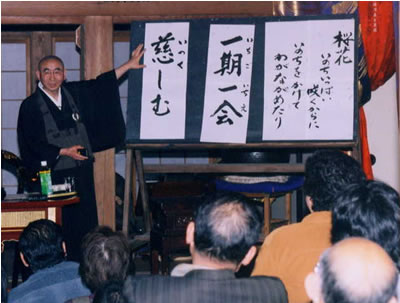 桜花
いのちいっぱい
咲くからに
いのちをかけて
わがながめたり
一期一会
いちごいちえ
慈しむ
いつく